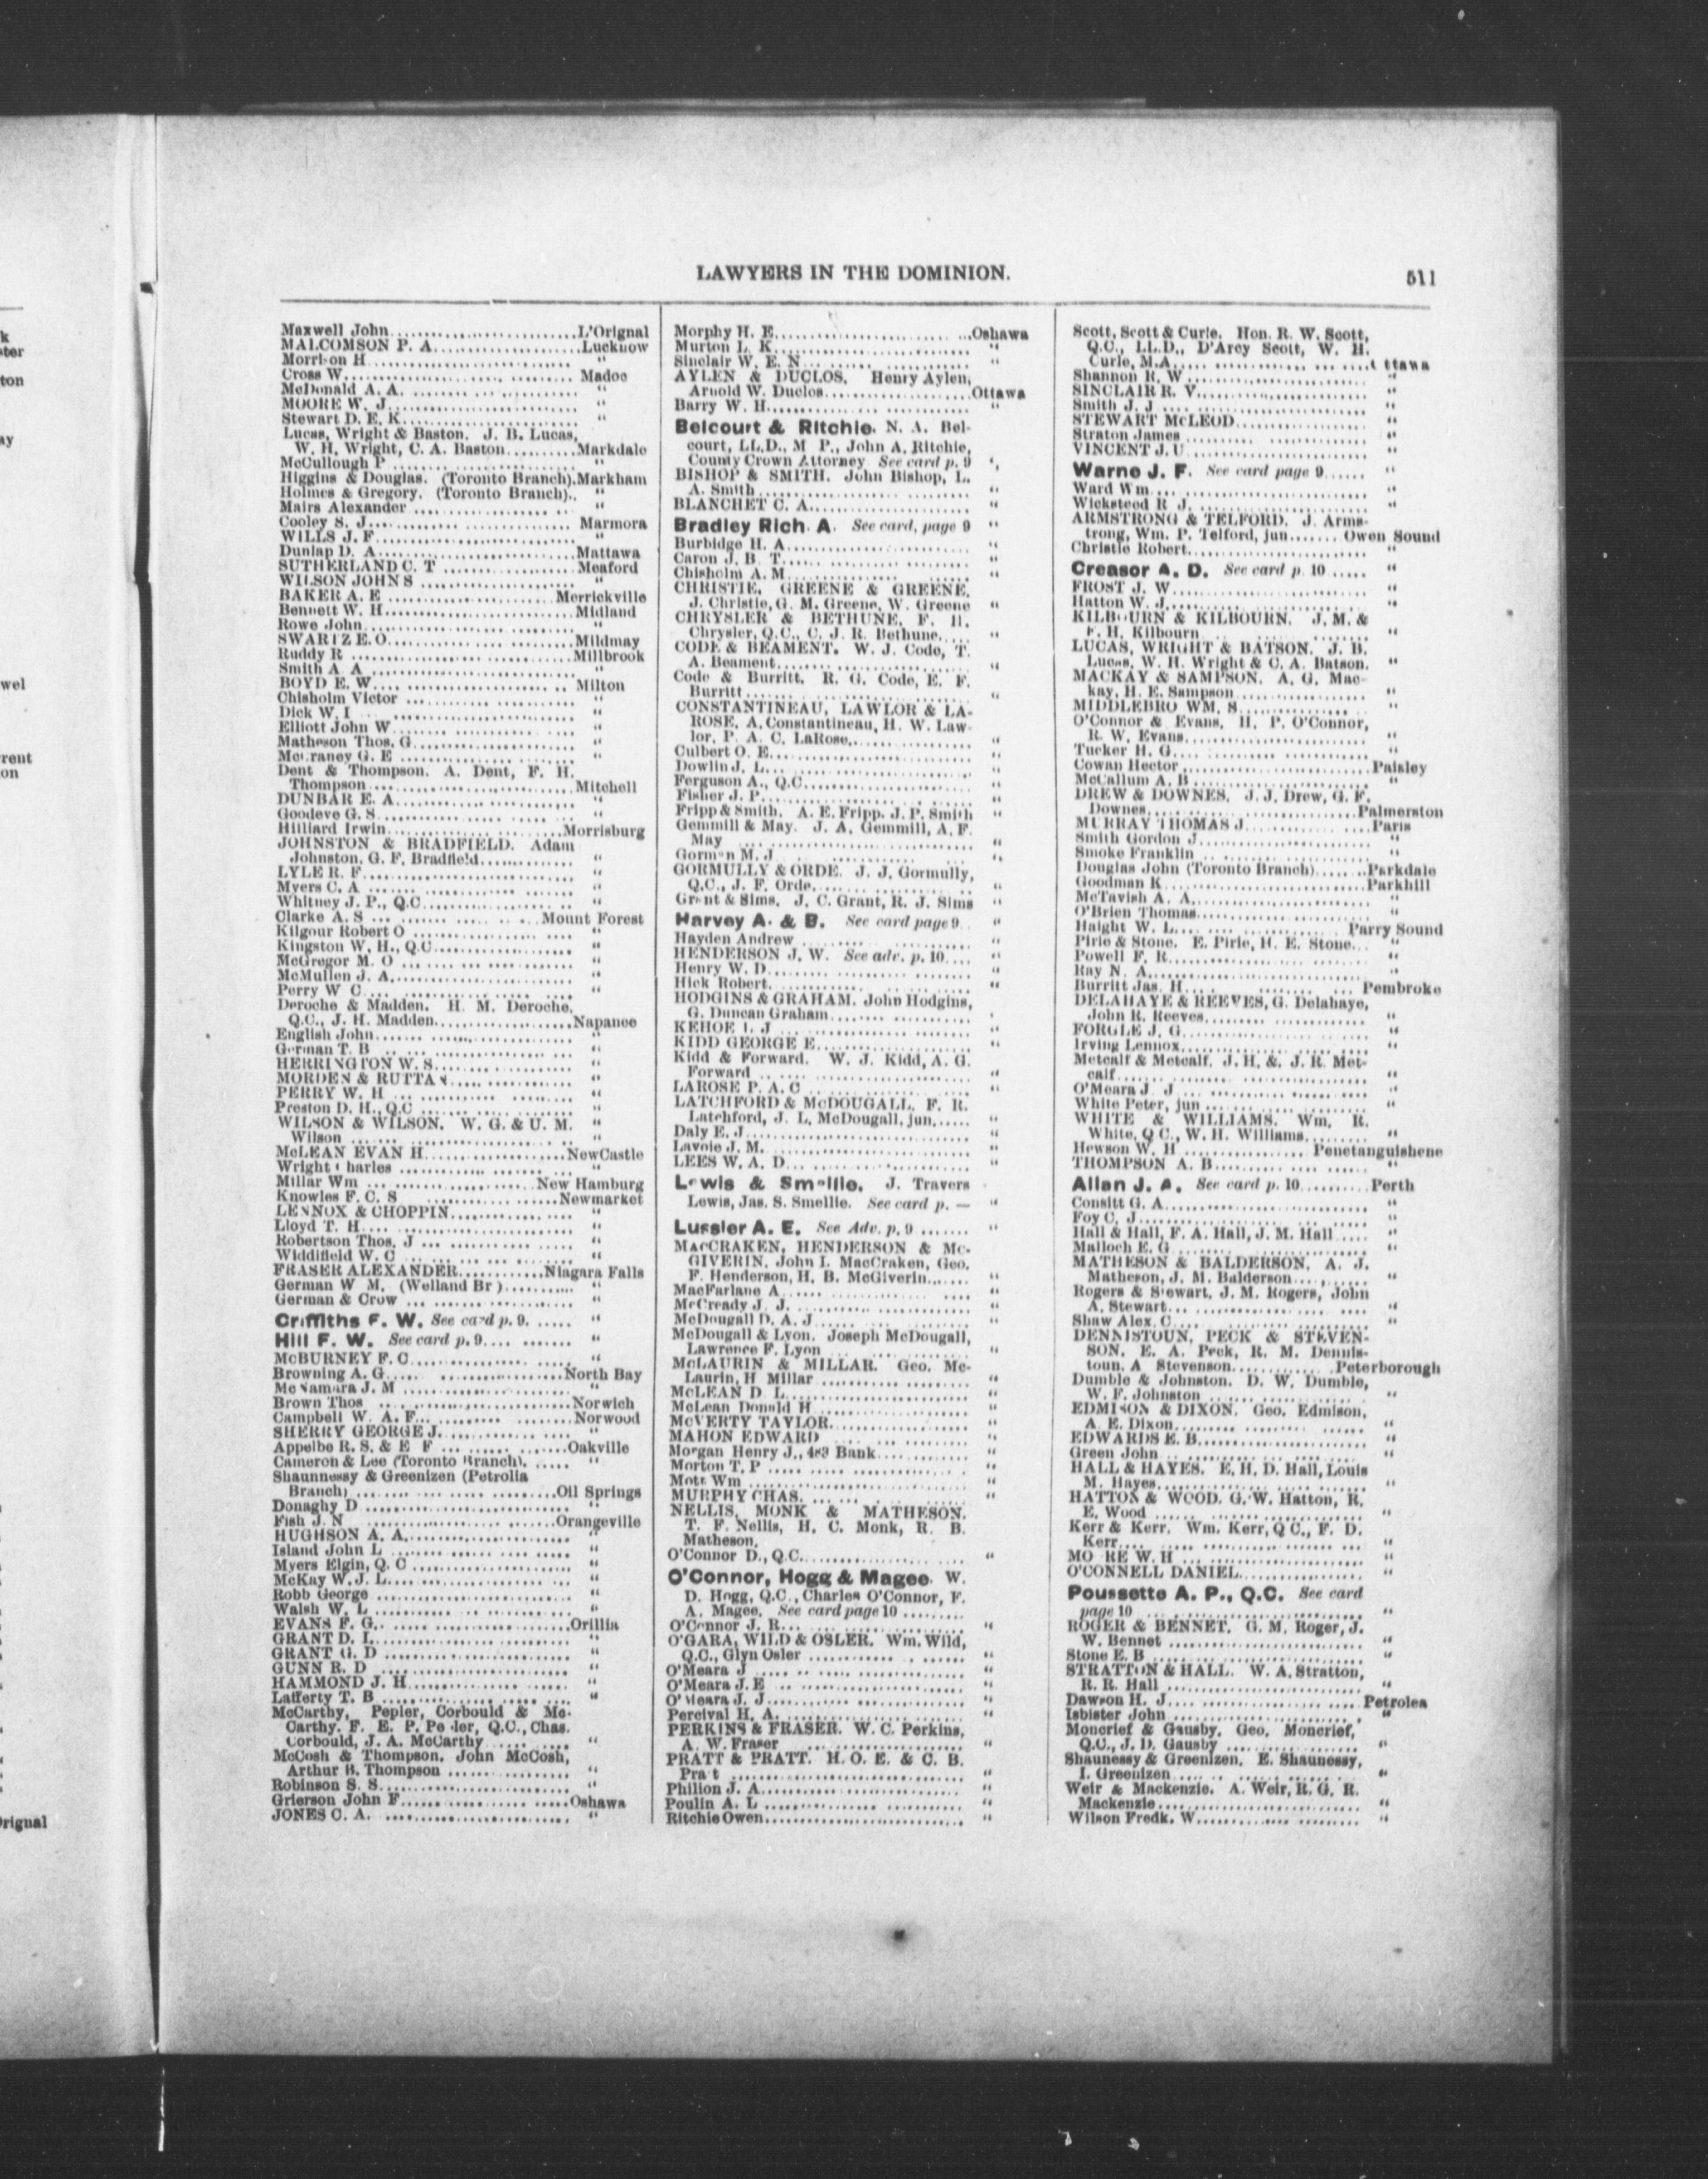 LAWYERS IN THE DOMINION.
511
Maxwell John.............................L'Orignal
MALCOMSON P. A.......................Lucknow
Morrison H ................................ "
Cross W................................ Madoc
McDonald A. A............................ "
MOORE W. J............................... "
Stewart D. E. K........................... "
Lucas, Wright & Baston. J. B. Lucas,
W. H. Wright, C. A. Baston..........Markdale
McCullough P ............................. "
Higgins & Douglas. (Toronto Branch).Markham
Holmes & Gregory. (Toronto Branch).. "
Mairs Alexander ........................ "
Cooley S. J............................... Marmora
WILLS J. F................................ "
Dunlap D. A..............................Mattawa
SUTHERLAND C. T .....................Meaford
WILSON JOHN S ......................... "
BAKER A. E ...........................Merrickville
Bennett W. H............................Midland
Rowe John................................ "
SWARTZ E. O............................Mildmay
Ruddy R .................................Millbrook
Smith A A ................................ "
BOYD E. W............................... Milton
Chisholm Victor ........................ "
Dick W. I ................................ "
Elliott John W........................... "
Matheson Thos. G........................ "
McCraney G. E ........................... "
Dent & Thompson. A. Dent, F. H.
Thompson................................Mitchell
DUNBAR E. A............................. "
Goodeve G. S.............................. "
Hilliard Irwin...........................Morrisburg
JOHNSTON & BRADFIELD. Adam
Johnston, G. F. Bradfield.............. "
LYLE R. F................................ "
Myers C. A ............................... "
Whitney J. P., Q.C........................ "
Clarke A. S ........................Mount Forest
Kilgour Robert O ........................ "
Kingston W. H., Q.C...................... "
McGregor M. O ........................... "
McMullen J. A............................ "
Perry W C................................ "
Deroche & Madden. H. M. Deroche,
Q.C., J. H. Madden.....................Napanee
English John............................. "
German T. B ............................. "
HERRINGTON W. S........................ "
MORDEN & RUTTAN....................... "
PERRY W. H .............................. "
Preston D. H., Q.C ........................ "
WILSON & WILSON. W. G. & U. M.
Wilson .................................. "
McLEAN EVAN H........................NewCastle
Wright Charles .......................... "
Millar Wm ...........................New Hamburg
Knowles F. C. S ........................Newmarket
LENNOX & CHOPPIN...................... "
Lloyd T. H................................ "
Robertson Thos. J ....................... "
Widdifield W. C .......................... "
FRASER ALEXANDER.............Niagara Falls
German W M. (Welland Br )........... "
German & Crow ......................... "
Criffiths F. W. See card p. 9. ..... "
Hill F. W. See card p. 9........... "
McBURNEY F. C.......................... "
Browning A. G..........................North Bay
McNamara J. M ......................... "
Brown Thos .............................Norwich
Campbell W. A. F.......................Norwood
SHERRY GEORGE J....................... "
Appelbe R. S. & E F ...................Oakville
Cameron & Lee (Toronto Branch). ..... "
Shaunnessy & Greenizen (Petrolia
Branch) ...............................Oil Springs
Donaghy D ............................... "
Fish J. N ............................Orangeville
HUGHSON A. A........................... "
Island John L ........................... "
Myers Elgin, Q. C ....................... "
McKay W. J. L........................... "
Robb George ............................. "
Walsh W. L .............................. "
EVANS F. G.............................Orillia
GRANT D. I............................... "
GRANT G. D .............................. "
GUNN R. D ............................... "
HAMMOND J. H........................... "
Lafferty T. B ............................. "
McCarthy, Pepler, Corbould & Mc-
Carthy. F. E. P. Pepler, Q.C., Chas.
Corbould, J. A. McCarthy............ "
McCosh & Thompson. John McCosh,
Arthur B. Thompson .................. "
Robinson S. S............................. "
Grierson John F.........................Oshawa
JONES C. A. .............................. "
Morphy H. E.............................Oshawa
Murton L. K.............................. "
Sinclair W. E. N.......................... "
AYLEN & DUCLOS. Henry Aylen,
Arnold W. Duclos......................Ottawa
Barry W. H............................... "
Belcourt & Ritchie. N. A. Bel-
court, LL.D., M P., John A. Ritchie,
County Crown Attorney See card p. 9 "
BISHOP & SMITH. John Bishop, L.
A. Smith................................ "
BLANCHET C. A.......................... "
Bradley Rich. A. See card, page 9 "
Burbidge H. A............................ "
Caron J. B. T............................. "
Chisholm A. M........................... "
CHRISTIE, GREENE & GREENE.
J. Christie, G. M. Greene, W. Greene "
CHRYSLER & BETHUNE. F. H.
Chrysler, Q.C., C. J. R. Bethune..... "
CODE & BEAMENT. W. J. Code, T.
A. Beament.............................. "
Code & Burritt. R. G. Code, E. F.
Burritt.................................. "
CONSTANTINEAU, LAWLOR & LA-
ROSE. A. Constantineau, H. W. Law-
lor, P. A. C. LaRose.................... "
Culbert O. E.............................. "
Dowlin J. L............................... "
Ferguson A., Q.C.......................... "
Fisher J. P................................ "
Fripp & Smith. A. E. Fripp. J. P. Smith "
Gemmill & May. J. A. Gemmill, A. F.
May .................................... "
Gorman M. J ............................. "
GORMULLY & ORDE. J. J. Gormully,
Q.C., J. F. Orde......................... "
Grant & Sims. J. C. Grant, R. J. Sims "
Harvey A. & B. See card page 9. "
Hayden Andrew ......................... "
HENDERSON J. W. See adv. p. 10.... "
Henry W. D............................... "
Hick Robert.............................. "
HODGINS & GRAHAM. John Hodgins,
G. Duncan Graham..................... "
KEHOE L J ............................... "
KIDD GEORGE E......................... "
Kidd & Forward. W. J. Kidd, A. G.
Forward ................................ "
LAROSE P. A. C .......................... "
LATCHFORD & McDOUGALL. F. R.
Latchford, J. L. McDougall, jun...... "
Daly E. J.................................. "
Lavoie J. M............................... "
LEES W. A. D............................. "
Lewis & Smellie. J. Travers
Lewis, Jas. S. Smellie. See card p. — "
Lussier A. E. See Adv. p. 9 ....... "
MacCRAKEN, HENDERSON & Mc-
GIVERIN. John I. MacCraken, Geo.
F. Henderson, H. B. McGiverin....... "
MacFarlane A............................ "
McCready J. J............................. "
McDougall D. A. J........................ "
McDougall & Lyon. Joseph McDougall,
Lawrence F. Lyon ...................... "
McLAURIN & MILLAR. Geo. Mc-
Laurin, H Millar ....................... "
McLEAN D L.............................. "
McLean Donald H........................ "
McVERTY TAYLOR....................... "
MAHON EDWARD ........................ "
Morgan Henry J., 483 Bank............. "
Morton T. P .............................. "
Motr Wm ................................. "
MURPHY CHAS. .......................... "
NELLIS, MONK & MATHESON.
T. F. Nellis, H. C. Monk, R. B.
Matheson.
O'Connor D., Q.C.......................... "
O'Connor, Hogg & Magee. W.
D. Hogg, Q.C., Charles O'Connor, F.
A. Magee. See card page 10 .........
O'Connor J. R............................. "
O'GARA, WILD & OSLER. Wm. Wild,
Q.C., Glyn Osler ........................ "
O'Meara J ................................ "
O'Meara J. E ............................. "
O'Meara J. J.............................. "
Percival H. A............................. "
PERKINS & FRASER. W. C. Perkins,
A. W. Fraser ............................ "
PRATT & PRATT. H. O. E. & C. B.
Pratt .................................... "
Philion J. A............................... "
Poulin A. L ............................... "
Ritchie Owen............................. "
Scott, Scott & Curle. Hon. R. W. Scott,
Q.C., LL.D., D'Arcy Scott, W. H.
Curle, M.A..............................Ottawa
Shannon R. W............................ "
SINCLAIR R. V............................ "
Smith J. J ................................ "
STEWART McLEOD...................... "
Straton James ........................... "
VINCENT J. U............................. "
Warne J. F. See card page 9...... "
Ward Wm ................................ "
Wicksteed R J............................ "
ARMSTRONG & TELFORD. J. Arms-
trong, Wm. P. Telford, jun....... Owen Sound
Christie Robert........................... "
Creasor A. D. See card p. 10 ..... "
FROST J. W............................... "
Hatton W. J............................... "
KILBOURN & KILBOURN. J. M. &
F. H. Kilbourn.......................... "
LUCAS, WRIGHT & BATSON. J. B.
Lucas, W. H. Wright & C. A. Batson. "
MACKAY & SAMPSON. A. G. Mac-
kay, H. E. Sampson..................... "
MIDDLEBRO WM. S...................... "
O'Connor & Evans, H. P. O'Connor,
R. W. Evans............................. "
Tucker H. G............................... "
Cowan Hector ...........................Paisley
McCallum A. B........................... "
DREW & DOWNES. J. J. Drew, G. F.
Downes..............................Palmerston
MURRAY THOMAS J....................Paris
Smith Gordon J........................... "
Smoke Franklin .......................... "
Douglas John (Toronto Branch)........Parkdale
Goodman K..............................Parkhill
McTavish A. A............................ "
O'Brien Thomas.......................... "
Haight W. L.........................Parry Sound
Pirie & Stone. E. Pirie, H. E. Stone... "
Powell F. R............................... "
Ray N. A.................................. "
Burritt Jas. H...........................Pembroke
DELAHAYE & REEVES, G. Delahaye,
John R. Reeves.......................... "
FORGIE J. G............................... "
Irving Lennox............................ "
Metcalf & Metcalf. J. H. &. J. R. Met-
calf...................................... "
O'Meara J J .............................. "
White Peter, jun ......................... "
WHITE & WILLIAMS. Wm. R.
White, Q C., W. H. Williams.......... "
Hewson W. H .................. Penetanguishene
THOMPSON A. B.......................... "
Allan J. A. See card p. 10..........Perth
Consitt G. A............................... "
Foy C. J................................... "
Hall & Hall, F. A. Hall, J. M. Hall ..... "
Malloch E. G ............................. "
MATHESON & BALDERSON. A. J.
Matheson, J. M. Balderson............ "
Rogers & Stewart. J. M. Rogers, John
A. Stewart............................... "
Shaw Alex. C............................. "
DENNISTOUN, PECK & STEVEN-
SON. E. A. Peck, R. M. Dennis-
toun, A Stevenson...............Peterborough
Dumble & Johnston. D. W. Dumble,
W. F. Johnston ......................... "
EDMISON & DIXON. Geo. Edmison,
A. E. Dixon.............................. "
EDWARDS E. B............................ "
Green John ............................... "
HALL & HAYES. E. H. D. Hall, Louis
M. Hayes................................ "
HATTON & WOOD. G. W. Hatton, R.
E. Wood ................................ "
Kerr & Kerr. Wm. Kerr, Q C., F. D.
Kerr..................................... "
MOORE W. H ............................. "
O'CONNELL DANIEL..................... "
Poussette A. P., Q.C. See card
page 10 ................................. "
ROGER & BENNET. G. M. Roger, J.
W. Bennet .............................. "
Stone E. B ................................ "
STRATTON & HALL. W. A. Stratton,
R. R. Hall ............................... "
Dawson H. J............................ Petrolea
Isbister John ............................. "
Moncrief & Gausby. Geo. Moncrief,
Q.C., J. D. Gausby ..................... "
Shaunessy & Greenizen. E. Shaunessy,
I. Greenizen............................. "
Weir & Mackenzie. A. Weir, R. G. R.
Mackenzie............................... "
Wilson Fredk. W.......................... "